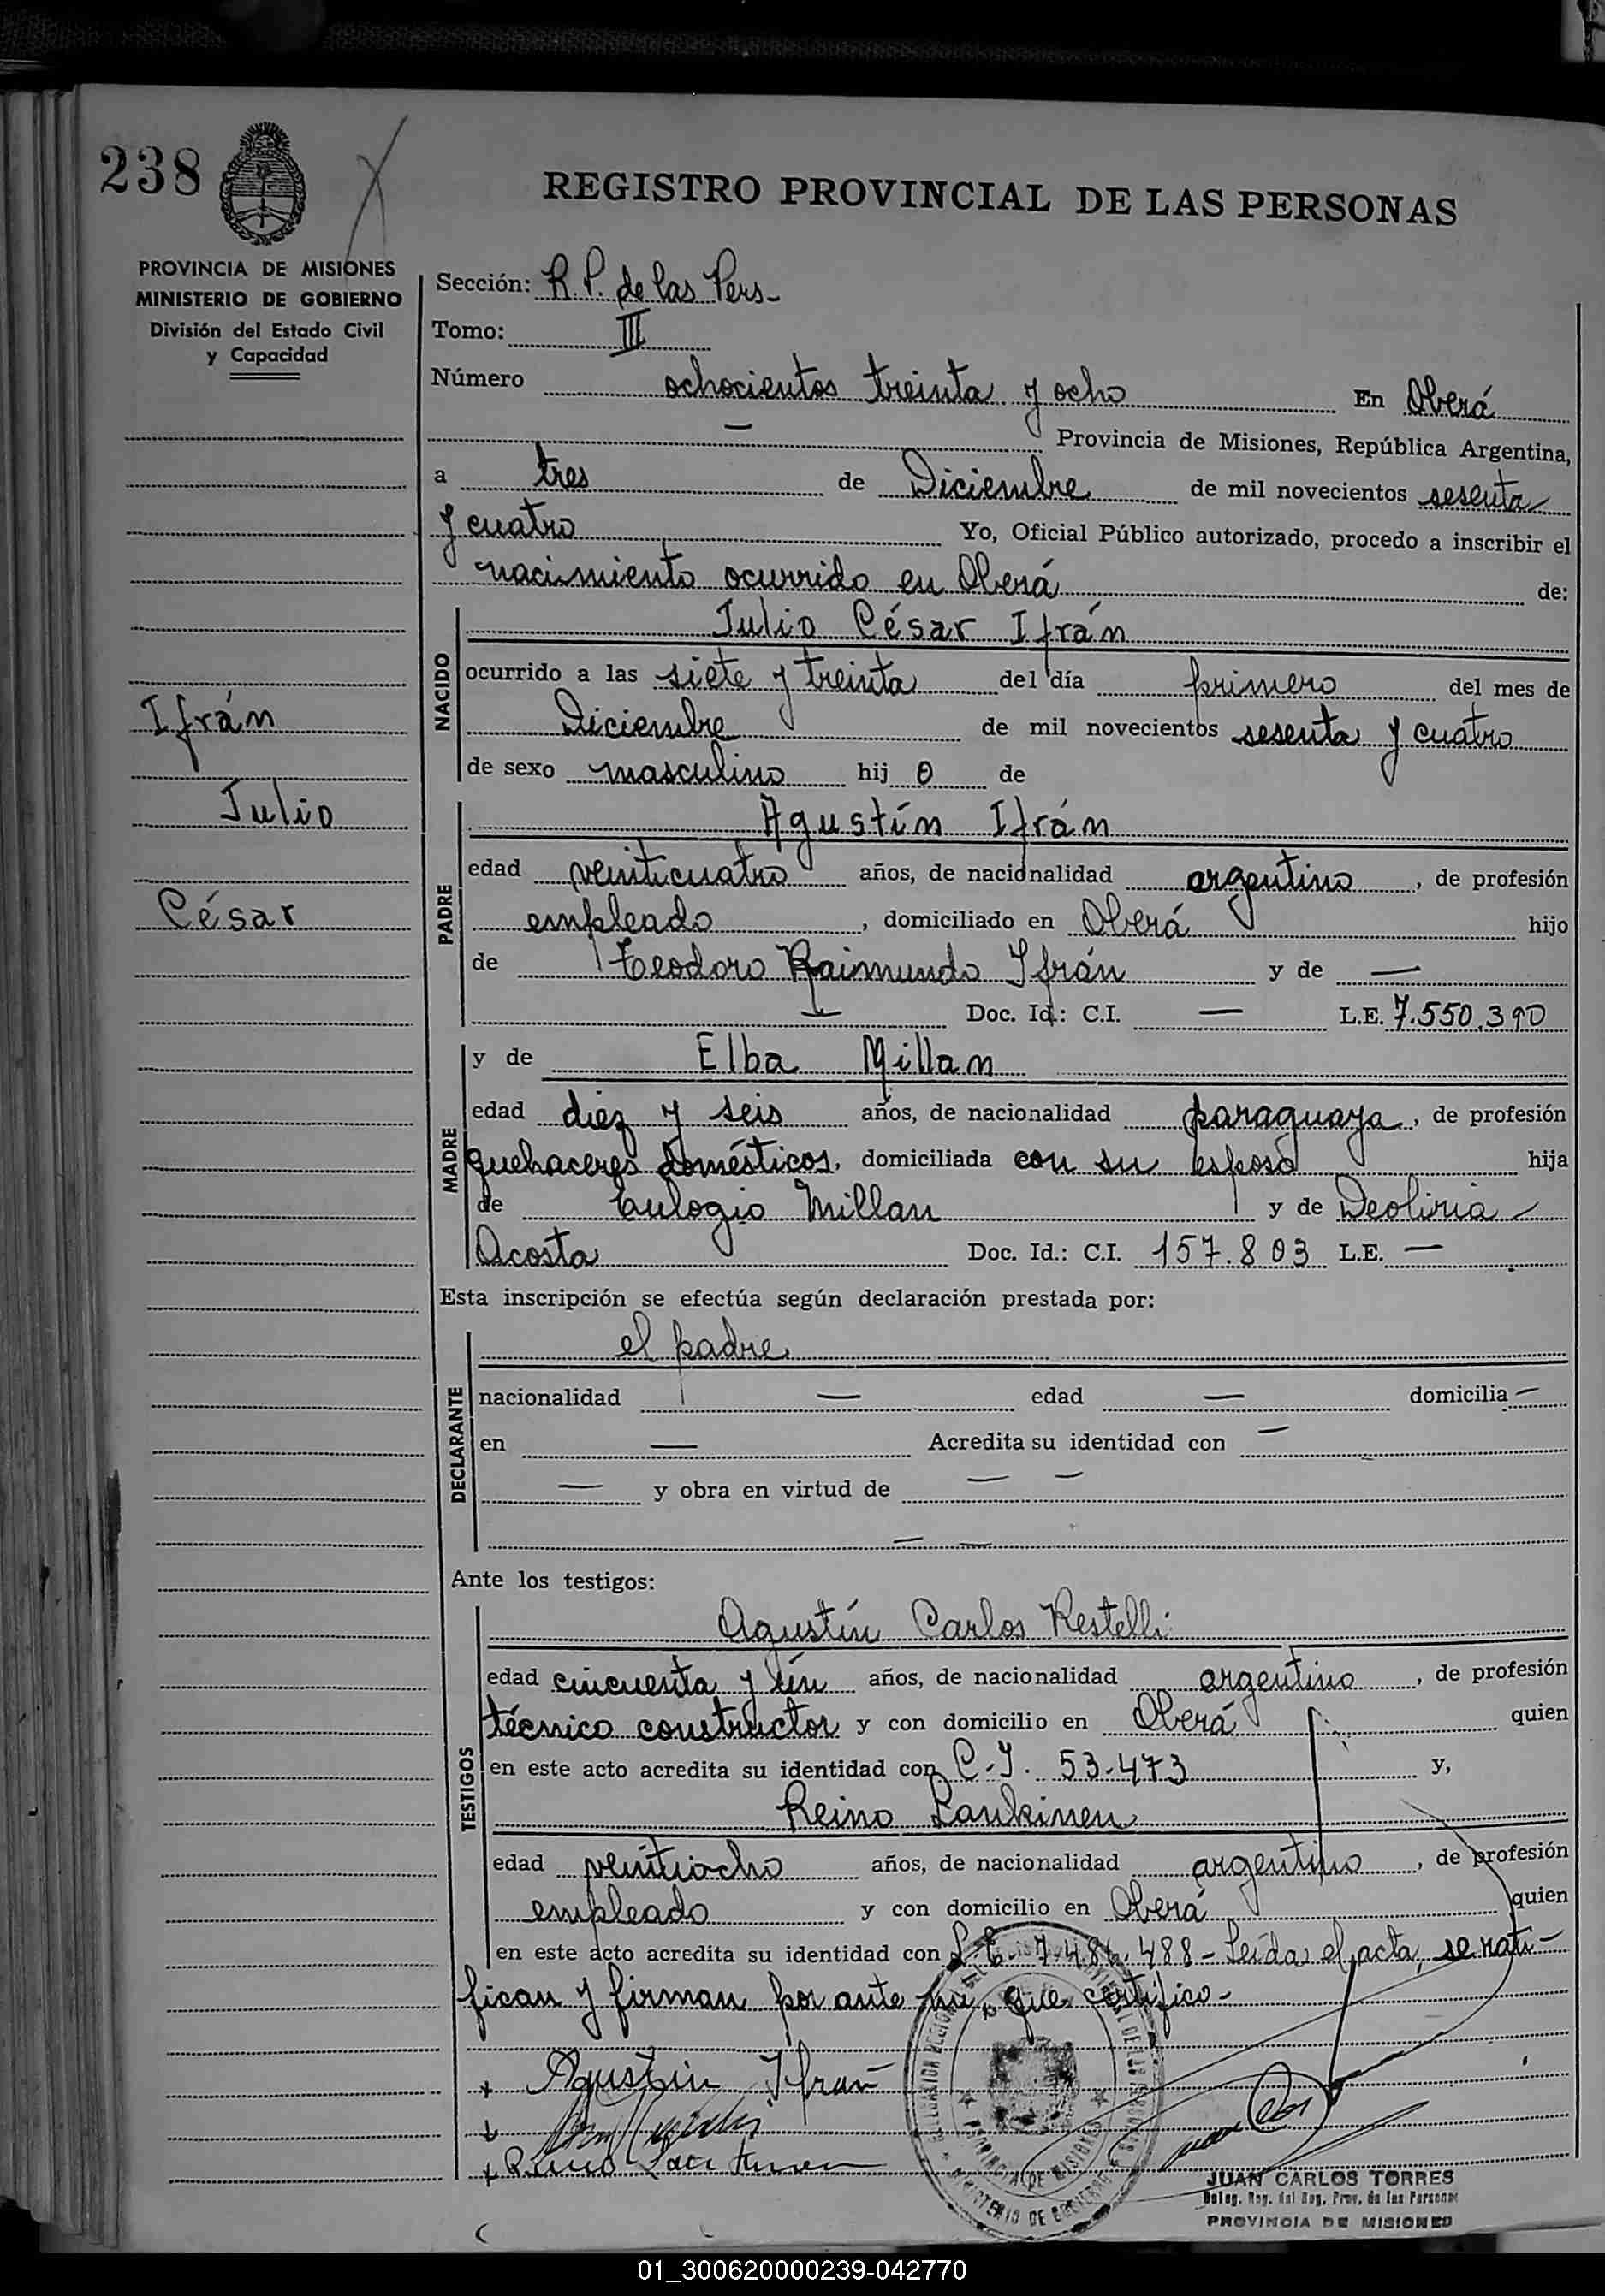 238
REGISTRO PROVINCIAL DE LAS PERSONAS
PROVINCIA DE MISIONES
MINISTERIO DE GOBIERNO
División del Estado Civil
y Capacidad
Ifrán
Julio
César
Sección: R.P. de las Pers-
Tomo: III
Número ochocientos treinta y ocho En Oberá
— Provincia de Misiones, República Argentina,
a tres de Diciembre de mil novecientos sesenta
y cuatro Yo, Oficial Público autorizado, procedo a inscribir el
nacimiento ocurrido en Oberá de:
NACIDO
Julio César Ifrán
ocurrido a las siete y treinta del día primero del mes de
Diciembre de mil novecientos sesenta y cuatro
de sexo masculino hij o de
PADRE
Agustín Ifrán
edad veinticuatro años, de nacionalidad argentino, de profesión
empleado, domiciliado en Oberá hijo
de Teodoro Raimundo Ifrán y de —
— Doc. Id.: C.I. — L.E. 7.550.390
MADRE
y de Elba Millan
edad diez y seis años, de nacionalidad paraguaya, de profesión
quehaceres domésticos, domiciliada con su esposo hija
de Eulogio Millan y de Deoliria —
Acosta Doc. Id.: C.I. 157.803 L.E. —
Esta inscripción se efectúa según declaración prestada por:
DECLARANTE
el padre
nacionalidad — edad — domicilia —
en — Acredita su identidad con —
— y obra en virtud de — —
— —
Ante los testigos:
TESTIGOS
Agustín Carlos Restelli
edad cincuenta y ún años, de nacionalidad argentino, de profesión
técnico constructor y con domicilio en Oberá quien
en este acto acredita su identidad con C.I. 53.473 y,
Reino Laukinen
edad veintiocho años, de nacionalidad argentino, de profesión
empleado y con domicilio en Oberá quien
en este acto acredita su identidad con L.E. 7.486.488 - Leída el acta, se rati-
fican y firman por ante mí, que certifico-
Agustin Ifrán
JUAN CARLOS TORRES
Deleg. Reg. del Reg. Prov. de las Personas
PROVINCIA DE MISIONES
01_300620000239-042770